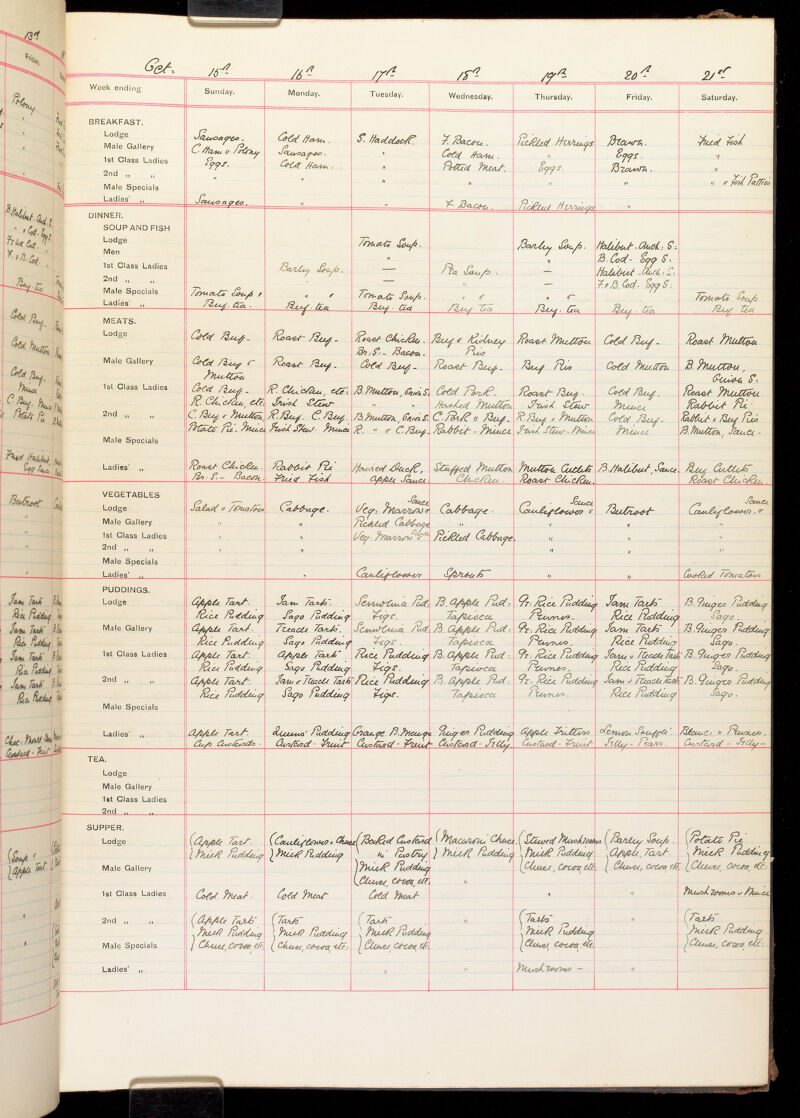 13th
Friday.
Polony
B. Halibut. Anch. S.
" . Cod. Egg S.
Fried Cod. "
F. & B. Cod. "
Beef-tea
Cold Beef.
Cold Mutton
Cold Beef.
Mince
C. Beef. Mince
Potato Pie
Fried Halibut,
Egg Sauce.
Beetroot
Jam Tart
Rice Pudding
Jam Tart
Rice Pudding
Jam Tart
Rice Pudding
Jam Tart
Rice Pudding
Custard - Fruit
Soup &
Apple Tart.
Oct. 15th 16th 17th 18th 19th 20th 21st
Week ending Sunday. Monday. Tuesday. Wednesday. Thursday. Friday. Saturday.
BREAKFAST.
Lodge Sausages. Cold Ham. S. Haddock. F. Bacon. Pickled Herrings Brawn. Fried Fish
Male Gallery C. Ham & Polony Sausages. " Cold Ham. " Eggs. "
1st Class Ladies Eggs. Cold Ham. " Potted Meat. Eggs. Brawn. "
2nd " " " " " " " " " & Fish Patties
Male Specials
Ladies' " Sausages. " " F. Bacon. Pickled Herrings "
DINNER.
SOUP AND FISH
Lodge Tomato Soup. Barley Soup. Halibut. Anch: S:
Men " " B. Cod - Egg S.
1st Class Ladies Barley Soup. — Pea Soup. — Halibut. Anch: S.
2nd " " " — " — F. & B. Cod - Egg S.
Male Specials Tomato Soup & " & Tomato Soup. " & " & Tomato Soup
Ladies' " Beef-tea. Beef-tea Beef-tea Beef tea Beef-tea Beef-tea Beef tea
MEATS.
Lodge Cold Beef. Roast Beef. Roast Chicken. Beef & Kidney Roast Mutton Cold Beef. Roast Mutton
Br. S. - Bacon. Pies
Male Gallery Cold Beef & Roast Beef. Cold Beef. Roast Beef. Beef Pies Cold Mutton B. Mutton,
Mutton Onion S.
1st Class Ladies Cold Beef. R. Chicken, etc: B. Mutton, Onion S. Cold Pork. Roast Beef. Cold Beef. Roast Mutton
R. Chicken, etc. Irish Stew " " Hashed Mutton Irish Stew Mince Rabbit Pie
2nd " " C. Beef & Mutton R. Beef. C. Beef. B. Mutton, Onion S. C. Pork & Beef. R. Beef & Mutton Cold Beef. Rabbit & Beef Pies
Potato Pie. Mince Irish Stew. Mince R. " & C. Beef. Rabbit - Mince Irish Stew. Mince Mince B. Mutton, Sauce.
Male Specials
Ladies' " Roast Chicken. Rabbit Pie Hashed Duck, Stuffed Mutton Mutton Cutlets B. Halibut, Sauce. Beef Cutlets
Br. S. - Bacon. Fried Fish Apple Sauce. Chicken. Roast Chicken. Roast Chicken.
VEGETABLES Sauce Sauce Sauce
Lodge Salad & Tomatoes Cabbage. Veg. Marrow & Cabbage. Cauliflower & Beetroot Cauliflower. &
Male Gallery " " Pickled Cabbage " " " "
1st Class Ladies " " Veg. Marrow & Sauce Pickled Cabbage. " " "
2nd " " " " " " "
Male Specials
Ladies' " " Cauliflower Sprouts " " Cooked Tomatoes
PUDDINGS.
Lodge Apple Tart. Jam Tarts. Semolina Pud: B. Apple Pud: Gr. Rice Pudding Jam Tarts B. Ginger Pudding
Rice Pudding Sago Pudding Figs. Tapioca Prunes. Rice Pudding Sago.
Male Gallery Apple Tart. Treacle Tarts. Semolina Pud. B. Apple Pud: Gr. Rice Pudding Jam Tarts B. Ginger Pudding
Rice Pudding Sago Pudding Figs. Tapioca Prunes. Rice Pudding Sago.
1st Class Ladies Apple Tart. Apple Tarts Rice Pudding B. Apple Pud: Gr. Rice Pudding Jam & Treacle Tarts B. Ginger Pudding
Rice Pudding Sago Pudding Figs. Tapioca Prunes. Rice Pudding Sago.
2nd " " Apple Tart. Jam & Treacle Tarts Rice Pudding B. Apple Pud. Gr. Rice Pudding Jam & Treacle Tarts B. Ginger Pudding
Rice Pudding Sago Pudding Figs. Tapioca Prunes. Rice Pudding Sago.
Male Specials
Ladies' " Apple Tart. Queens' Pudding Orange B. Mange Ginger Pudding Apple Fritters Lemon Soufflé. Blanc: & Prunes.
Cup Custards. Custard - Fruit Custard - Fruit Custard - Jelly Custard - Fruit Jelly - Pears. Custard - Jelly -
TEA.
Lodge
Male Gallery
1st Class Ladies
2nd " "
SUPPER.
Lodge Apple Tart. Cauliflower & Cheese Baked Custard Macaroni Cheese Stewed Mushrooms Barley Soup. Potato Pie
Milk Pudding Milk Pudding in Pastry Milk Pudding Milk Pudding Apple Tart Milk Pudding
Male Gallery Milk Pudding Cheese, cocoa, etc Cheese, cocoa etc. Cheese, cocoa, etc:
Cheese, cocoa, etc. "
1st Class Ladies Cold Meat. Cold Meat Cold Meat " " Mushrooms & Mince
2nd " " Apple Tarts Tarts Tarts " Tarts " Tarts
Milk Pudding Milk Pudding Milk Pudding Milk Pudding Milk Pudding
Male Specials Cheese, cocoa, etc. Cheese, cocoa, etc. Cheese cocoa etc. Cheese, cocoa, etc Cheese, cocoa, etc:
Ladies' " " " Mushrooms - "